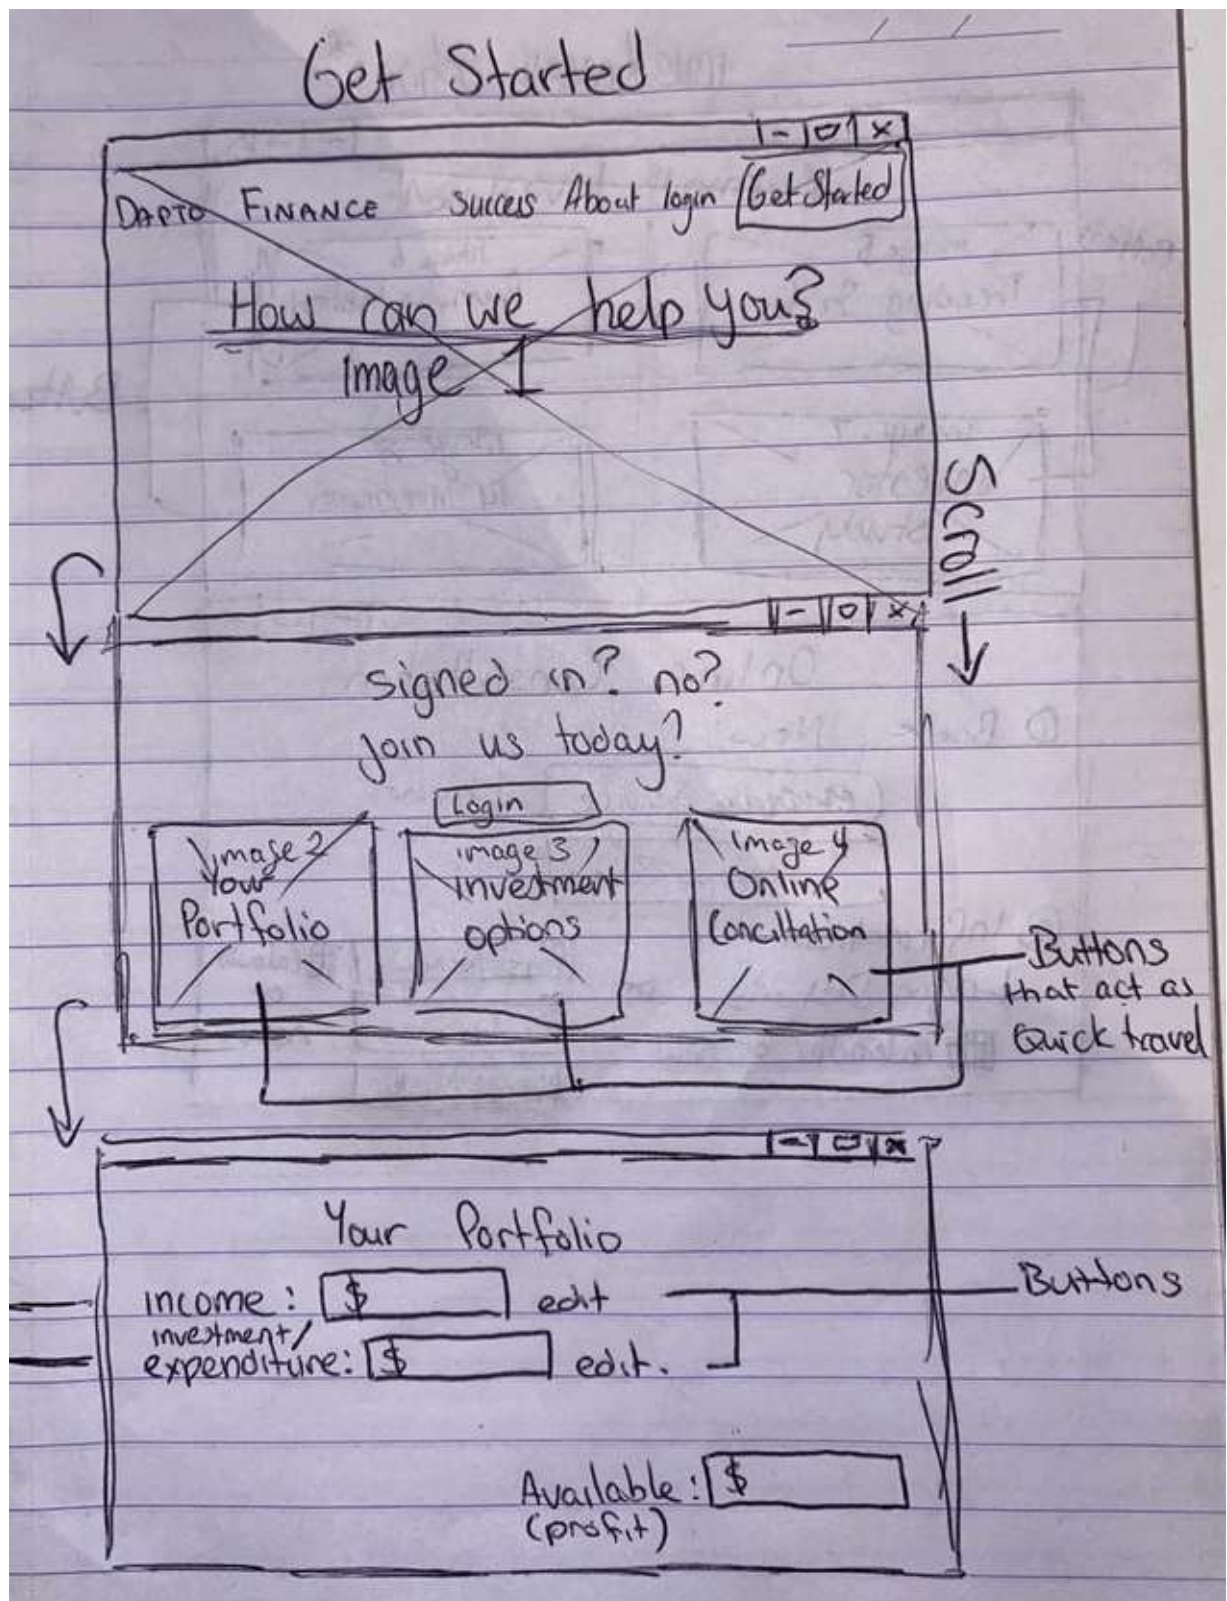 Get Started
DAPTO FINANCE success About login Get Started
How can we help you?
Image 1
Scroll
signed in? no?
join us today?
Login
image 2
Your
Portfolio
image 3
investment
options
image 4
Online
Conciltation
Buttons
that act as
Quick travel
Your Portfolio
income: $ edit
investment/
expenditure: $ edit.
Buttons
Available: $
(profit)